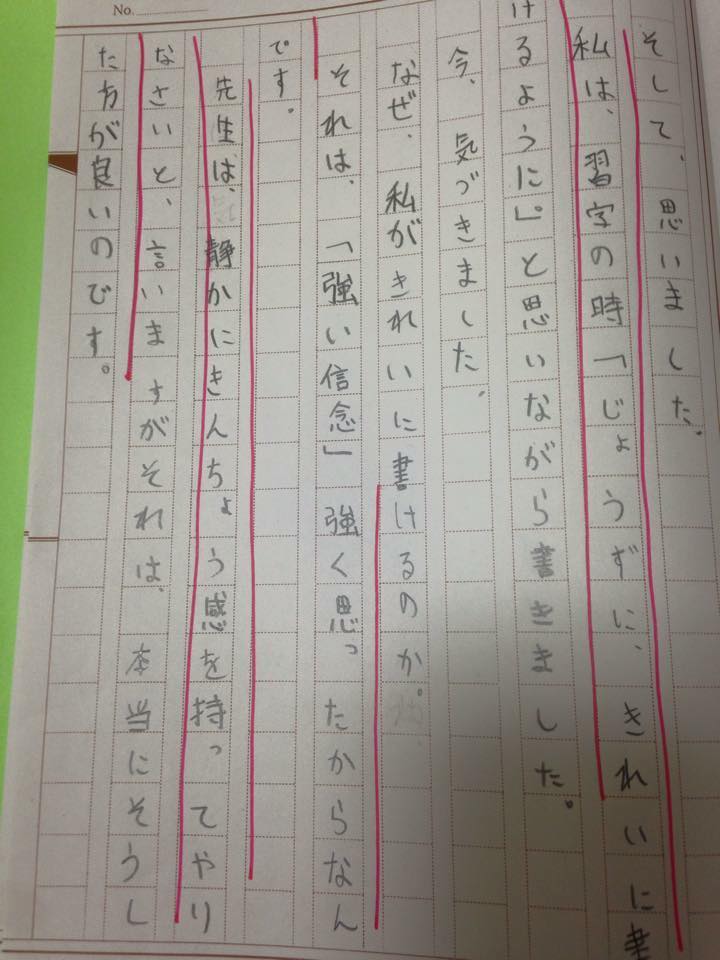 No.
そして、思いました。
私は、習字の時「じょうずに、きれいに書
けるように」。と思いながら書きました。
今、気づきました。
なぜ、私がきれいに書けるのか。
それは、「強い信念」強く思ったからなん
です。
先生は、静かにきんちょう感を持ってやり
なさいと、言いますがそれは、本当にそうし
た方が良いのです。